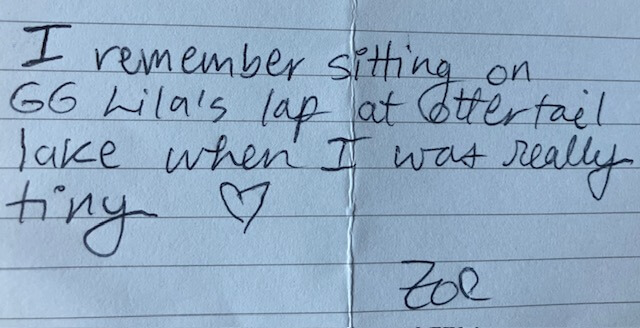 I remember sitting on
GG Lila's lap at Ottertail
lake when I was really
tiny ♡
Zoe